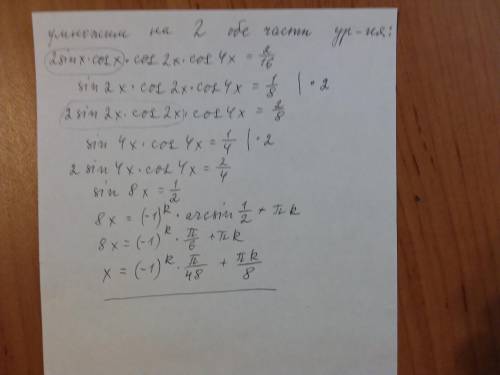 умножим на 2 обе части ур-ния:
2sinx·cosx·cos2x·cos4x = 2/16
sin2x·cos2x·cos4x = 1/8 | ·2
2sin2x·cos2x·cos4x = 2/8
sin4x·cos4x = 1/4 | ·2
2sin4x·cos4x = 2/4
sin8x = 1/2
8x = (-1)^k · arcsin 1/2 + πk
8x = (-1)^k · π/6 + πk
x = (-1)^k · π/48 + πk/8